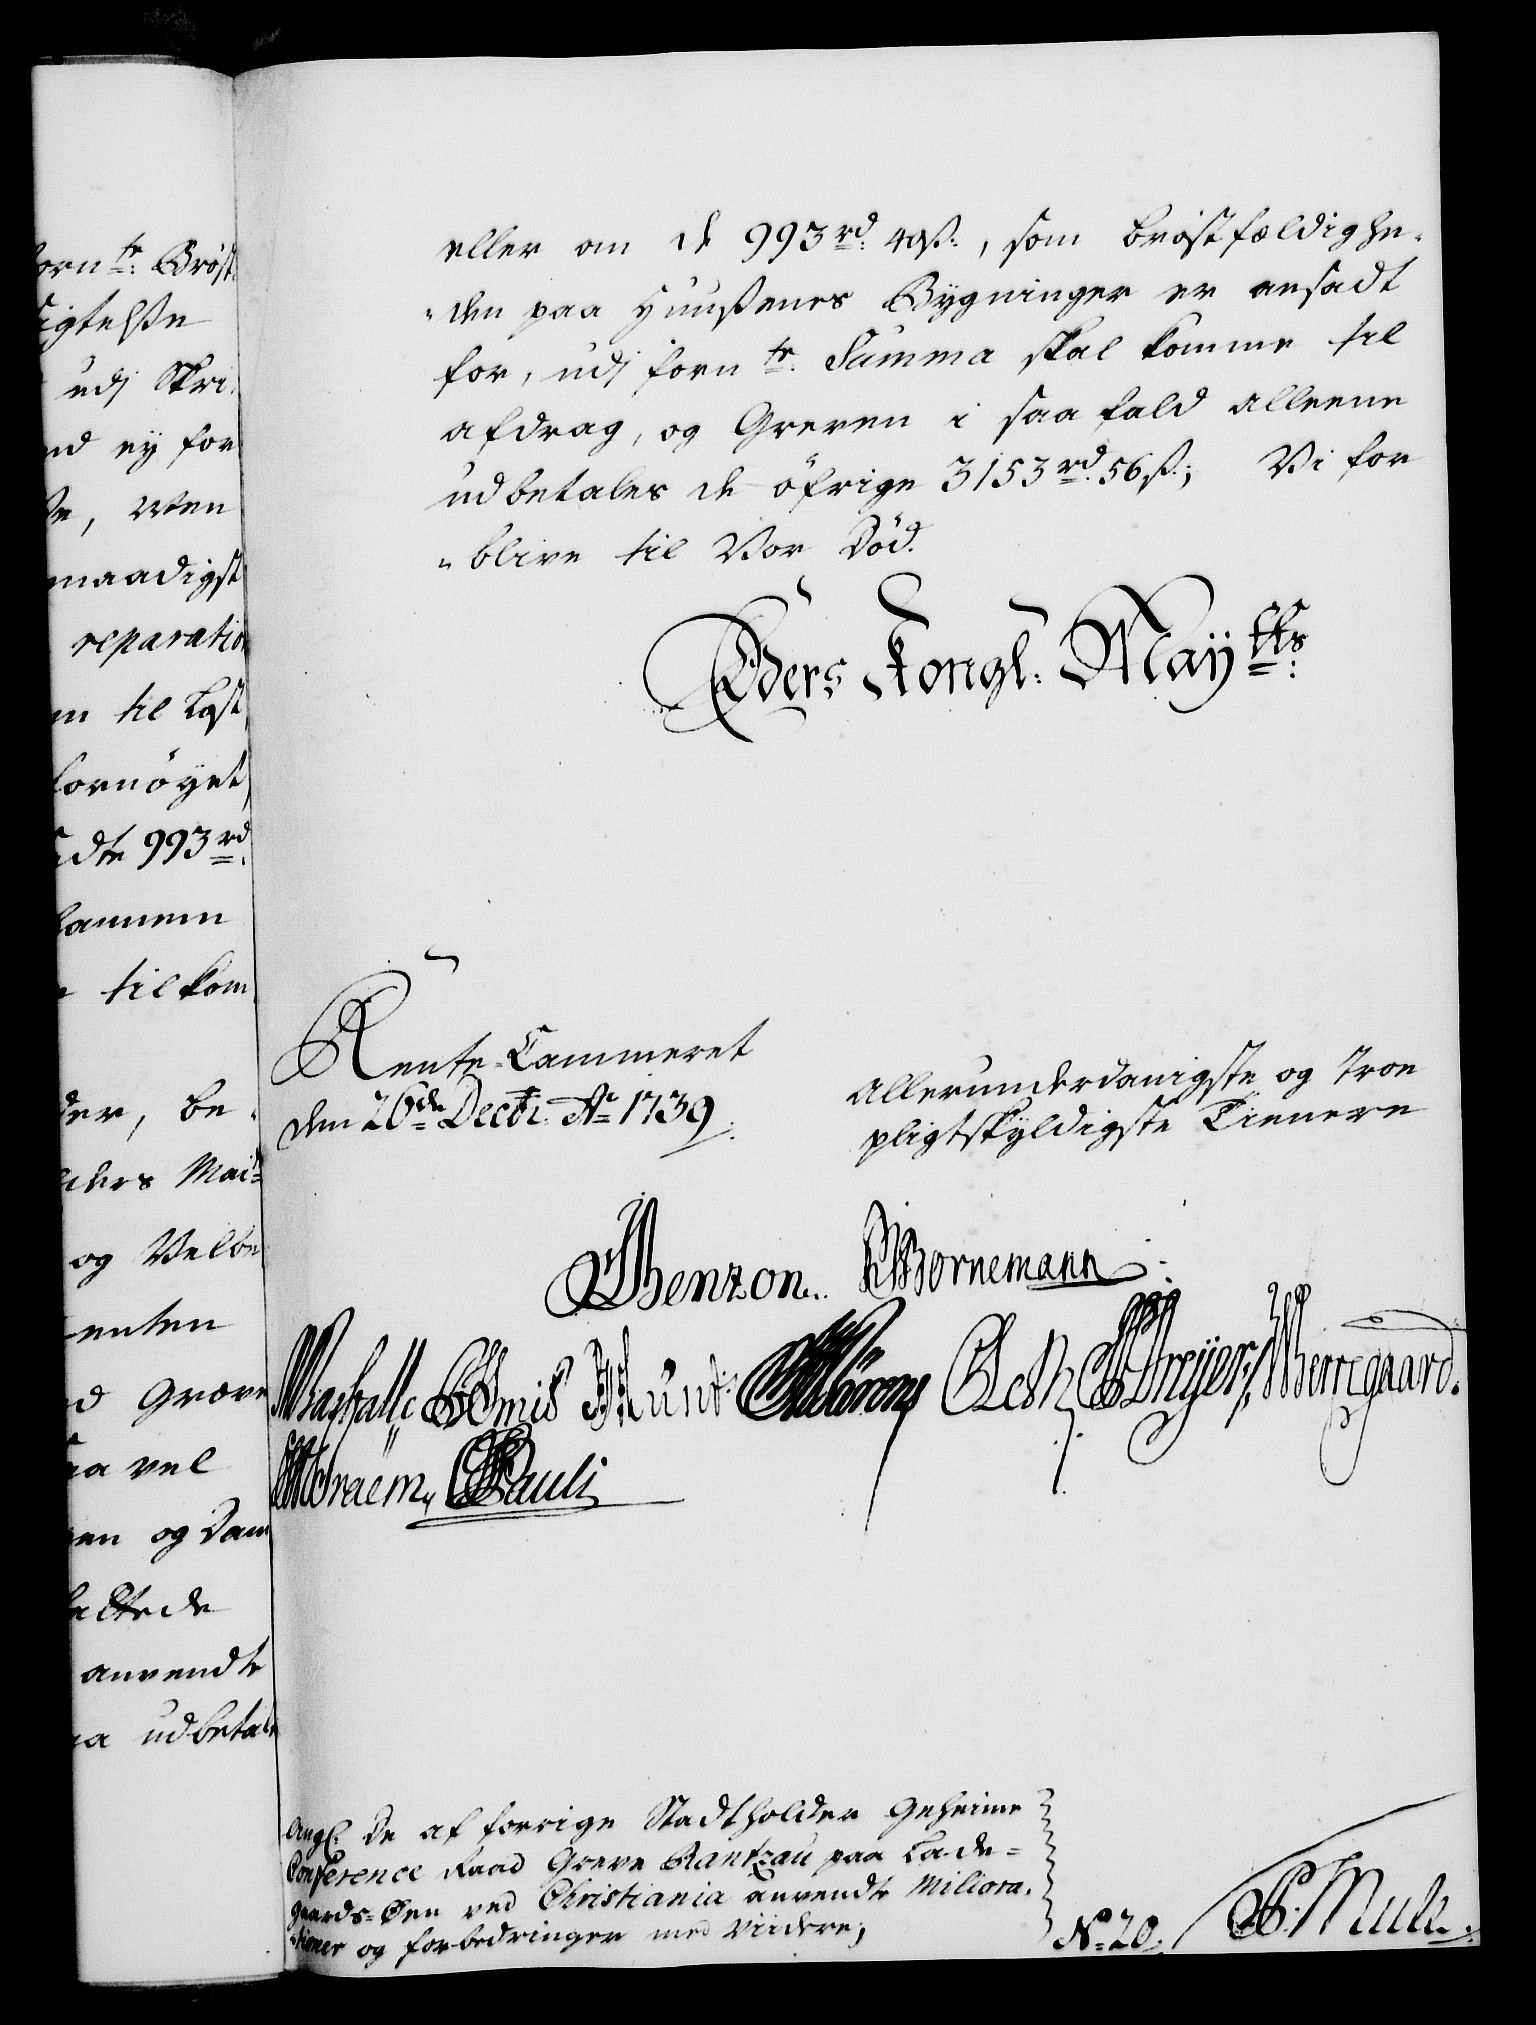 ornte: Brøst
sigtelsse
udj Skri,
nd ey for
de, men
naadigst
reparatio
m til Lyst
fornøyet,
dte 993rd.
annem
til kom
der, be-
ders Mait
og Velbe
enten
d Greve
saa vel
en og Dam
tede
anvendte
a udbetale
eller om de 993rd. 40ß:, som brøstfældighe-
-den paa Huußenes Bygninger er ansadt
for, udj fornte. Summa skal komme til
afdrag, og Greven i saa fald alleene
udbetales de øfrige 3153rd. 56ß:; Vi for
-blive til Vor Død.
Eders Kongl: Maytts:
Rente-Cammeret
den 26de Decbr. Ao 1739.
Allerunderdanigste og Troe
pligtskyldigste Tienere
Benzon. Bornemann.
Dreyer Bierregaard.
Graem, Pauli
Angl: De af forrige Stadtholder Geheime
Conference Raad Greve Rantzau paa Lade-
gaards-Øen ved Christiania anvendte Miliora-
-tioner og forbedringer med viidere;
No 20. Mule.